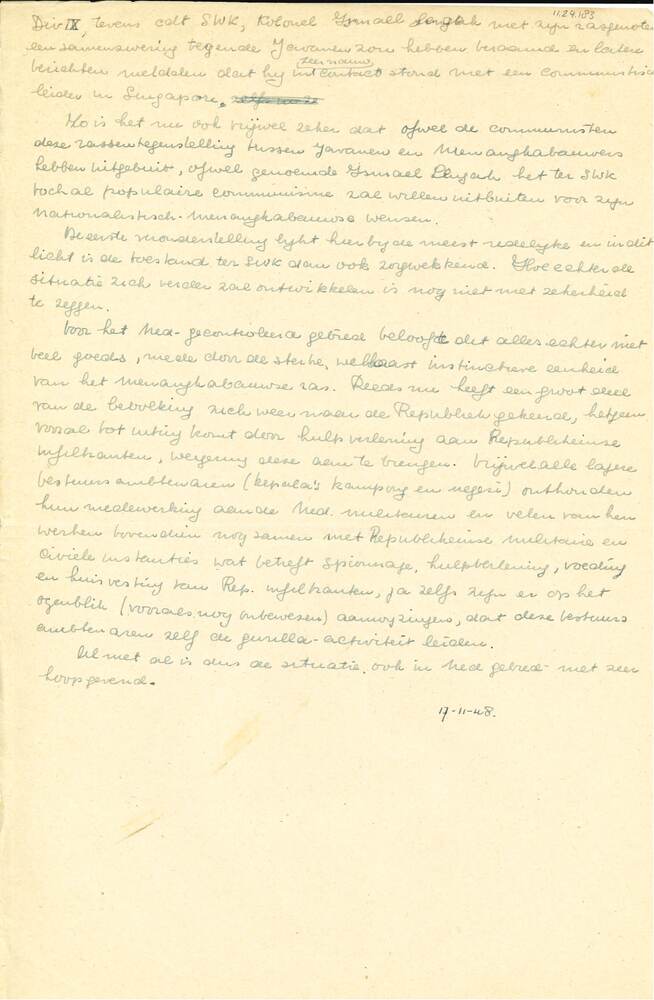 11.24.1183
Div IX, tevens cdt SWK, Kolonel Ysmaël Lengah met zijn rasgenoten
een samenzwering tegen de Javanen zou hebben beraamd en latere
berichten meldden dat hij in zeer nauw contact stond met een communistisch
leider in Singapore.
Zo is het nu ook vrijwel zeker dat ofwel de communisten
deze rassentegenstelling tussen Javanen en Menangkabauers
hebben uitgebuit, ofwel genoemde Ysmael Lengah het ter SWK
toch al populaire communisme zal willen uitbuiten voor zijn
nationalistisch-Menangkabause wensen.
De eerste veronderstelling lijkt hierbij de meest redelijke en in dit
licht is de toestand ter SWK dan ook zorgwekkend. Hoe echter de
situatie zich verder zal ontwikkelen is nog niet met zekerheid
te zeggen.
Voor het Ned-gecontroleerd gebied belooft dit alles echter niet
veel goeds, mede door de sterke, welhaast instinctieve eenheid
van het Menangkabause ras. Reeds nu heeft een groot deel
van de bevolking zich weer naar de Republiek gekeerd, hetgeen
vooral tot uiting komt door hulpverlening aan Republikeinse
infiltranten, weigering deze aan te brengen. Vrijwel alle lagere
bestuursambtenaren (kepala's kampong en negeri) onthouden
hun medewerking aan de Ned. militairen en velen van hen
werken bovendien nog samen met Republikeinse militaire en
civiele instanties wat betreft spionnage, hulpverlening, voeding
en huisvesting van Rep. infiltranten, ja zelfs zijn er op het
ogenblik (vooralsnog onbewezen) aanwijzingen, dat deze bestuurs
ambtenaren zelf de gurilla-activiteit leiden.
Al met al is dus de situatie, ook in Ned gebied niet zeer
hoopgevend.
17-11-48.